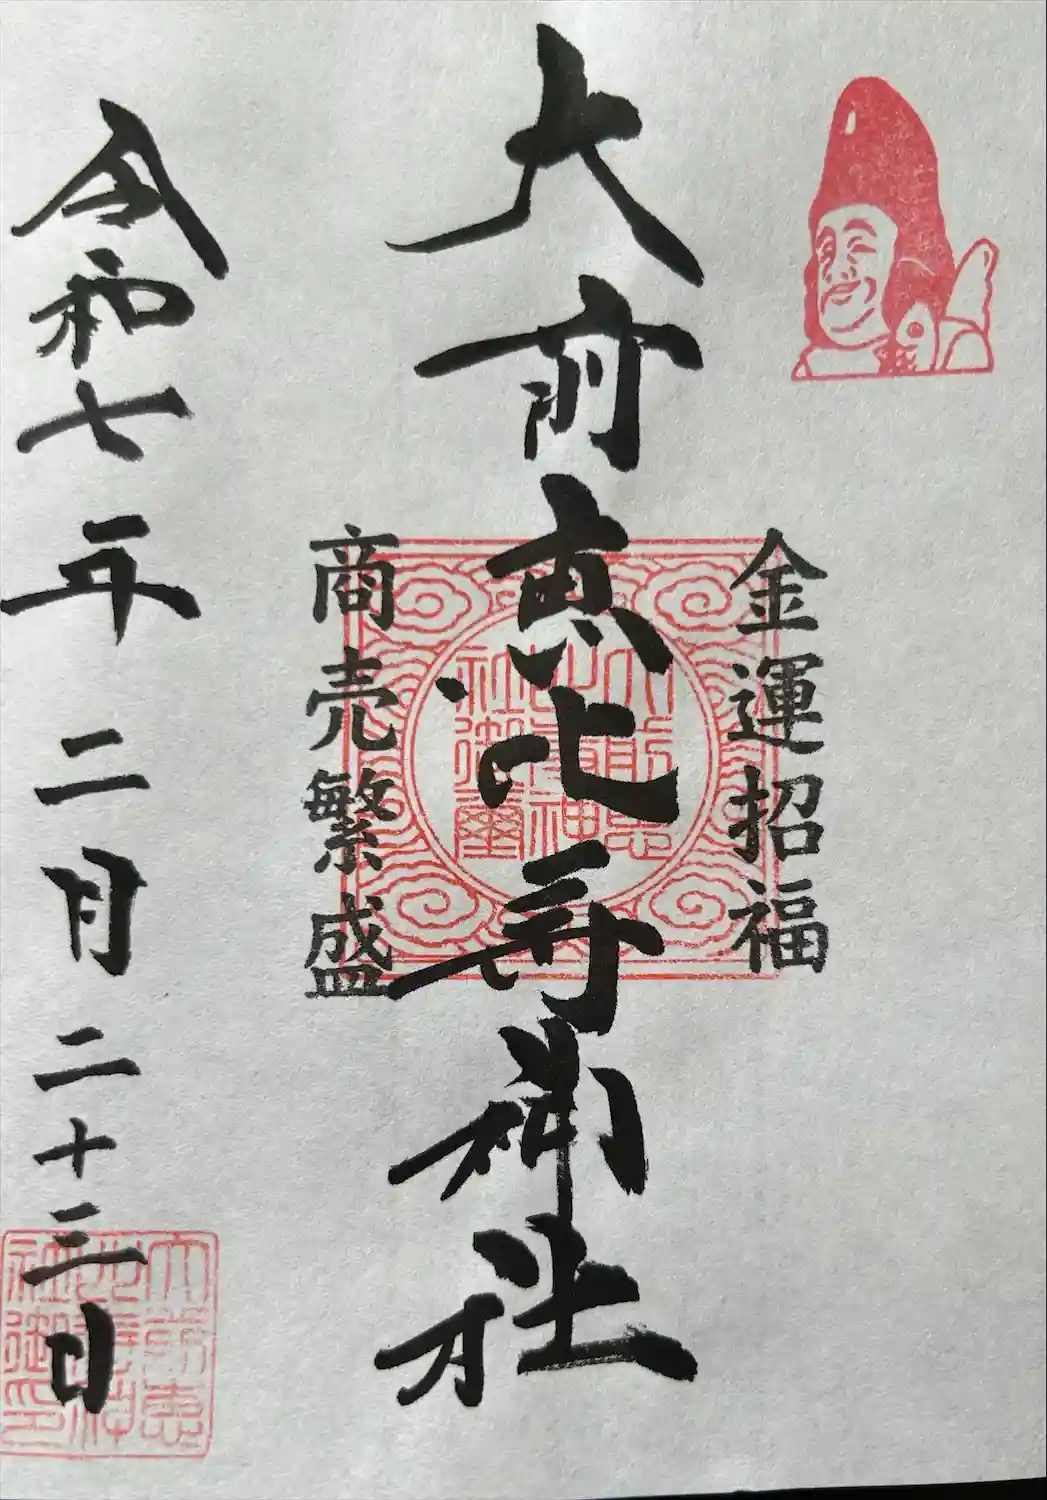 金運招福
大前恵比寿神社
大前恵
比寿神
社御璽
商売繁盛
令和七年二月二十三日
大前恵
比寿神
社御印